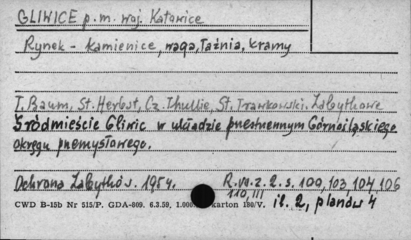 GLIWICE p. m. woj. Katowice
Rynek - kamienice, waga, łaźnia, kramy
T. Baum, St. Herbst, Cz. Thullie, St. Trawkowski. Zabytkowe
Śródmieście Gliwic w układzie przestrzennym Górnośląskiego
okręgu przemysłowego.
Ochrona Zabytków. 1954. R. VII. z. 2. s. 100, 103, 104, 106
110, 111
il. 2, planów 4
CWD B-15b Nr 515/P. GDA-809. 6.3.59, 1.000 karton 180/V.